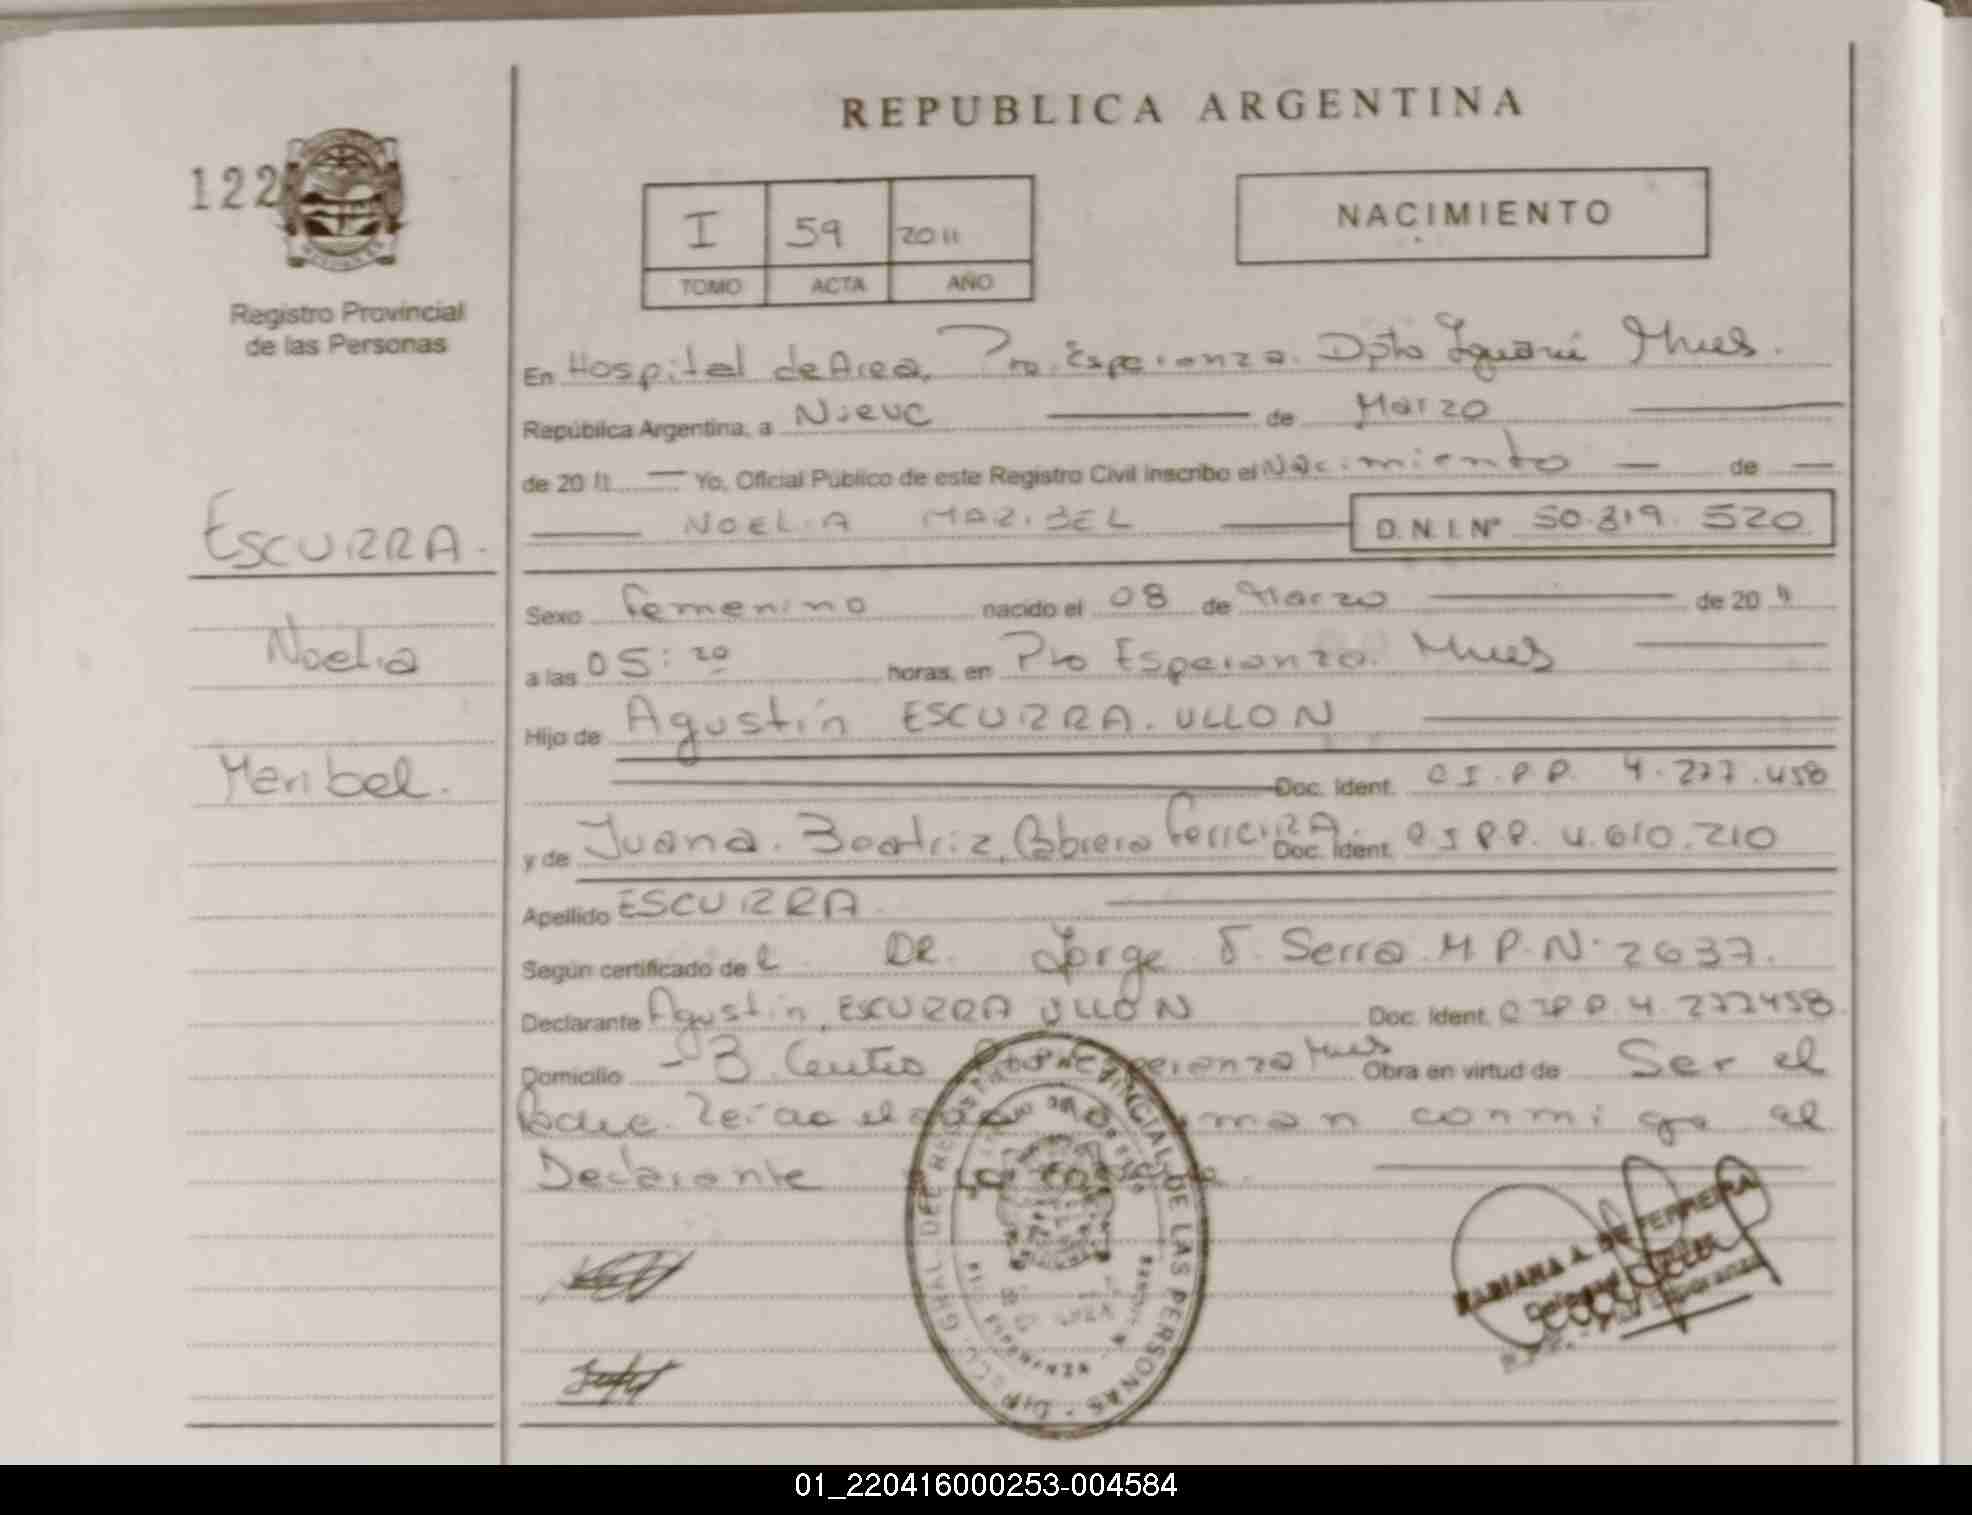 REPUBLICA ARGENTINA
122
I 59 2011
TOMO ACTA AÑO
NACIMIENTO
Registro Provincial
de las Personas
En Hospital de Area, Pto. Esperanza. Dpto Iguazú Mnes.
República Argentina, a Nueve de Marzo
de 20 11 Yo, Oficial Público de este Registro Civil inscribo el Nacimiento de
NOELIA MARIBEL D.N.I.Nº 50.319.520
ESCURRA.
Noelia
Maribel.
Sexo Femenino nacido el 08 de Marzo de 20 11
a las 05:20 horas, en Pto Esperanza. Mnes
Hijo de Agustín ESCURRA. ULLON
Doc. Ident. C I. P P. 4.277.458
y de Juana. Beatriz, Cabrera Ferreira Doc. Ident. C I P.P. 4.610.210
Apellido ESCURRA.
Según certificado de l DR. Jorge Serra. M P. N. 2637.
Declarante Agustín, ESCURRA ULLON Doc. Ident. C IP P. 4.277458
Domicilio - B. Centro Esperanza Mnes Obra en virtud de Ser el
Padre. Leída el firman conmigo el
Declarante
DE FERREIRA
DIRECC. GRAL. DEL REGISTRO PROVINCIAL DE LAS PERSONAS
01_220416000253-004584